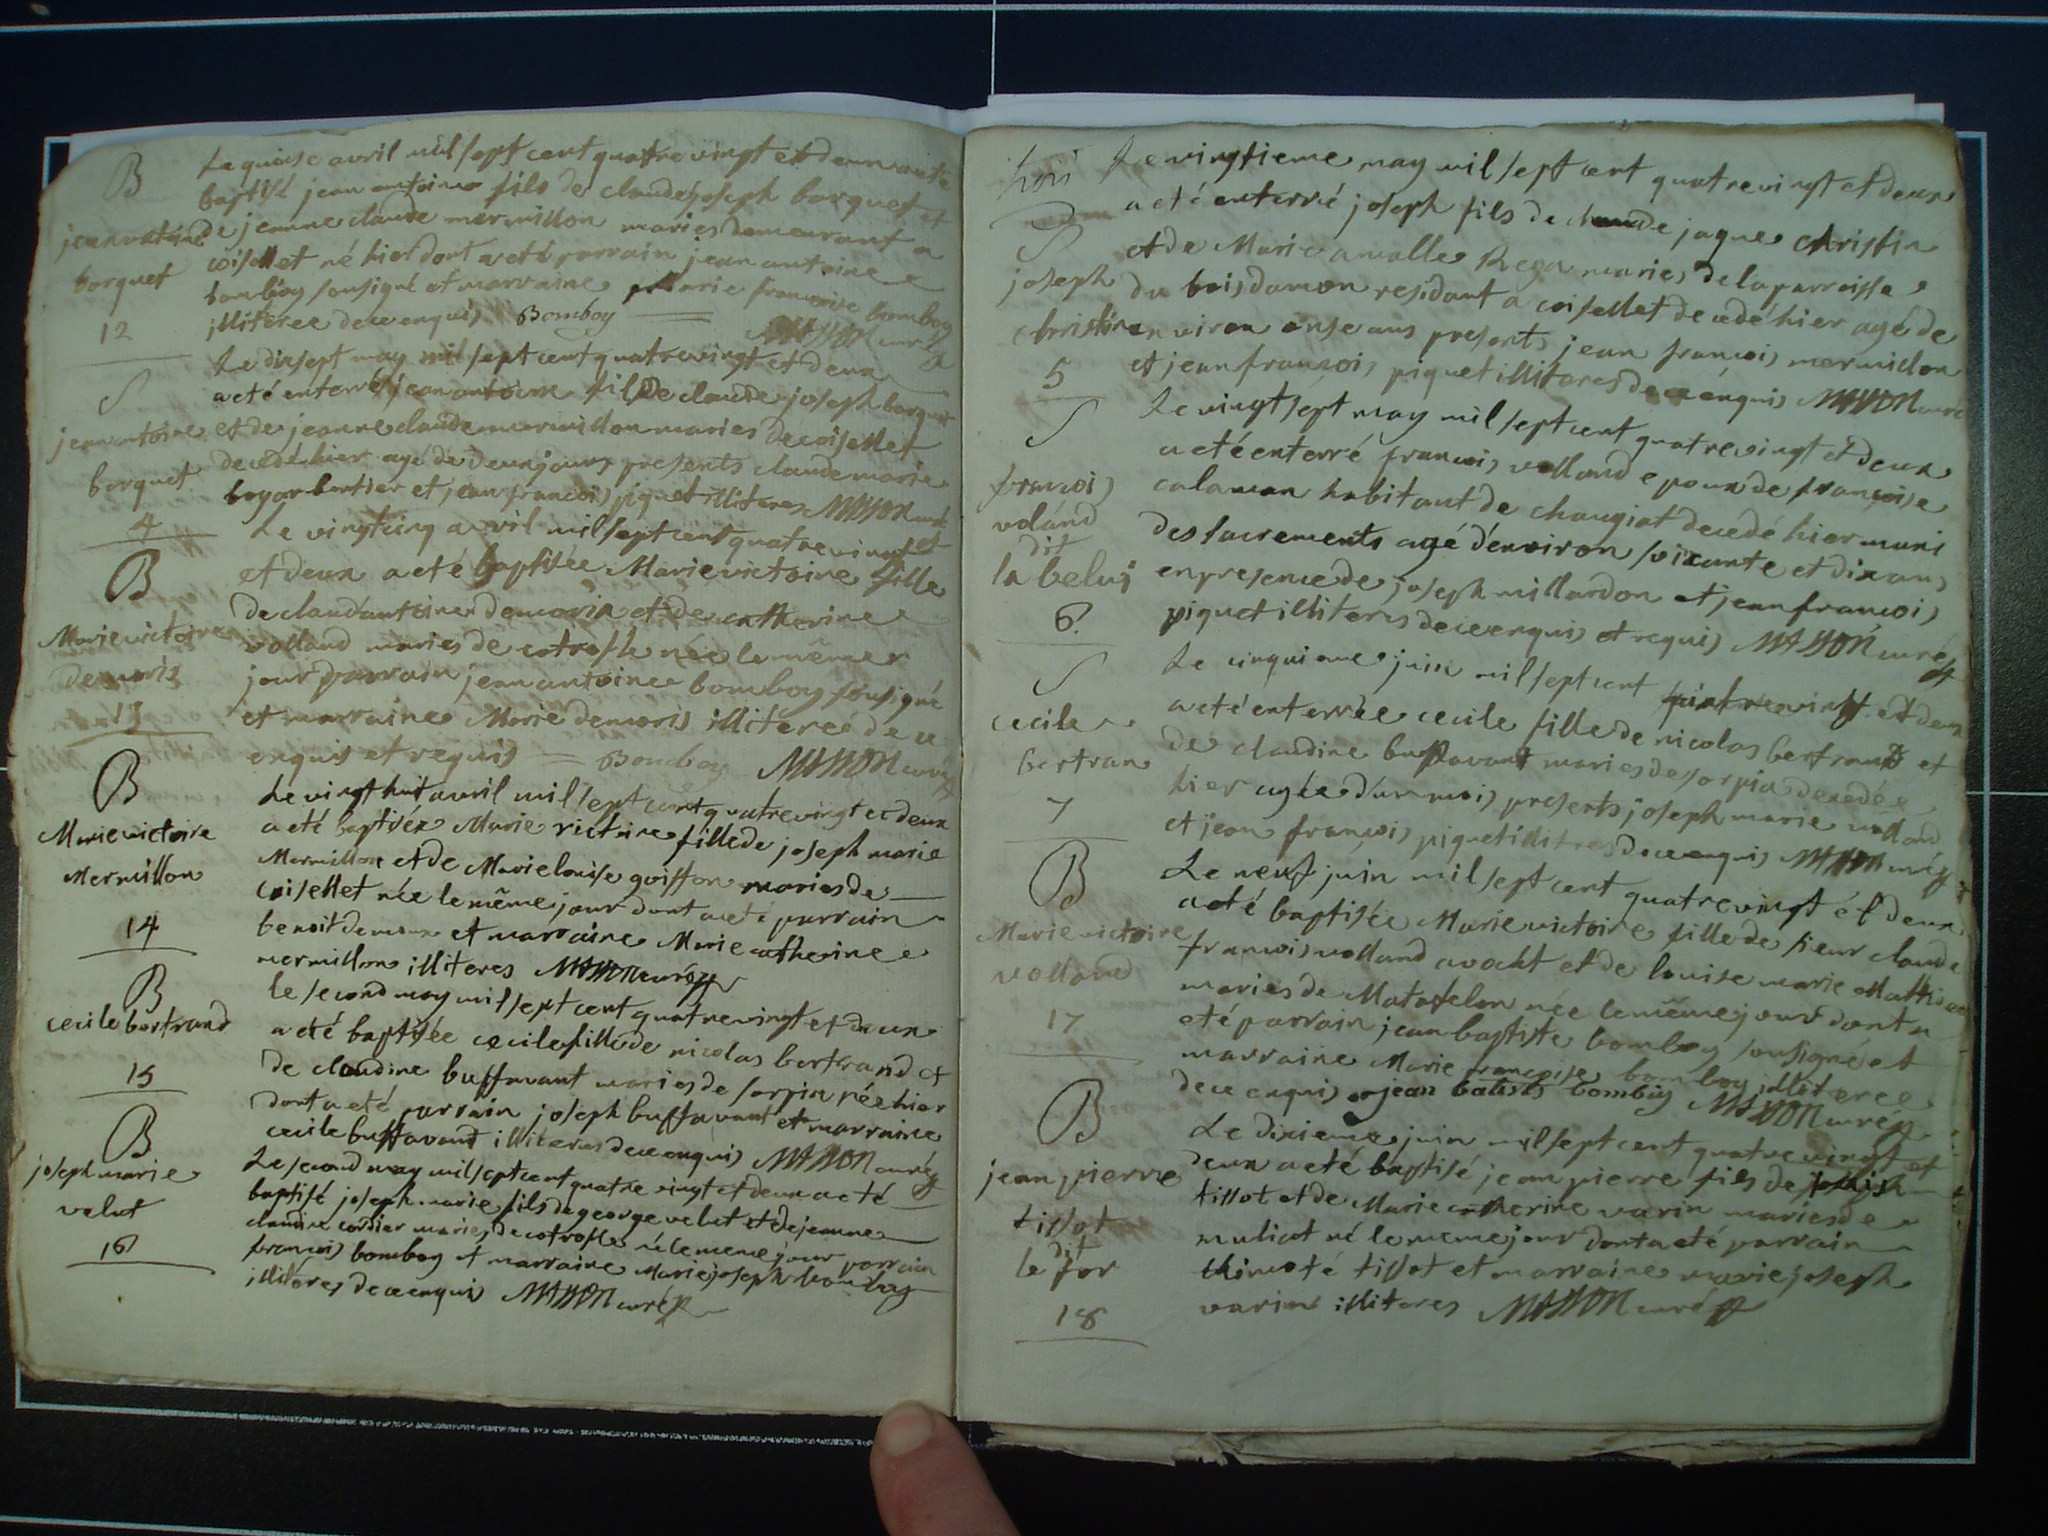 B
jean antoine
borquet
12
Le quinse avril mil sept cent quatre vingt et deux a eté
baptisé jean antoine fils de claude joseph borquet et
de jeanne claude mermillon maries demeurant a
coisellet né hier dont a eté parrain jean antoine
bomboy sousigné et marraine Marie francoise bomboy
illiteree de ce enquis Bomboy MASSON curé
S
jean antoine
borquet
4
Le dixsept may mil sept cent quatre vingt et deux
a eté enterré jean antoine fils de claude joseph borquet
et de jeanne claude mermillon maries de coisellet
decedé hier agé de deux jours presents claude marie
boyar et jean francois piquet illiteres MASSON curé
B
Marie victoire
demoris
13
Le vingt cinq avril mil sept cent quatre vingt
et deux a eté baptisée Marie victoire fille
de claud'antoine demoris et de catherine
volland maries de née le même
jour parrain jean antoine bomboy sousigné
et marraine Marie demoris illiteree de ce
enquis et requis = Bomboy MASSON curé
B
Marie victoire
Mermillon
14
Le vingt huit avril mil sept cent quatre vingt et deux
a eté baptisée Marie victoire fille de joseph marie
Mermillon et de Marie louise goiffon maries de
Coisellet née le même jour dont a eté parrain
benoit et marraine Marie catherine
mermillon illiteres MASSON curé
B
cecile bertrand
15
le second may mil sept cent quatre vingt et deux
a eté baptisée cecile fille de nicolas bertrand et
de claudine buffavant maries de sorpia née hier
dont a eté parrain joseph buffavant et marraine
cecile buffavant illiteres de ce enquis MASSON curé
B
joseph marie
velut
16
Le second may mil sept cent quatre vingt et deux a eté
baptisé joseph marie fils de george velut et de jeanne
claudine cordier maries de né le meme jour parrain
françois bomboy et marraine Marie joseph bomboy
illiteres de ce enquis MASSON curé
S
joseph
christin
5
Le vingtieme may mil sept cent quatre vingt et deux
a eté enterré joseph fils de claude jaque christin
et de Marie maries de la parroisse
du bois damon residant a coisellet decedé hier agé de
environ onse ans presents jean françois mermillon
et jean françois piquet illiteres de ce enquis MASSON curé
S
françois
voland
dit
la beluj
6
Le vingt sept may mil sept cent quatre vingt et deux
a eté enterré francois volland epoux de françoise
calaman habitant de changiat decedé hier muni
des sacrements agé d'environ soixante et dix ans
en presence de joseph millardon et jean francois
piquet illiteres de ce enquis et requis MASSON curé
S
cecile
bertran
7
Le cinquieme juin mil sept cent quatre vingt et deux
a eté enterrée cecile fille de nicolas bertrand et
de claudine buffavant maries de sorpia decedée
hier agée d'un mois presents joseph marie volland
et jean françois piquet illitres de ce enquis MASSON curé
B
Marie victoire
volland
17
Le neuf juin mil sept cent quatre vingt et deux
a eté baptisée Marie victoire fille de sieur claude
francois volland avocat et de louise marie
maries de Matafelon née le même jour dont a
eté parrain jean baptiste bomboy sousigné et
marraine Marie françoise bomboy illiteree
de ce enquis jean batiste bomboy MASSON curé
B
jean pierre
tissot
dit
le for
18
Le dixieme juin mil sept cent quatre vingt et
deux a eté baptisé jean pierre fils de
tissot et de Marie catherine varin maries de
muliat né le meme jour dont a eté parrain
thimoté tissot et marraine marie joseph
varin illiteres MASSON curé